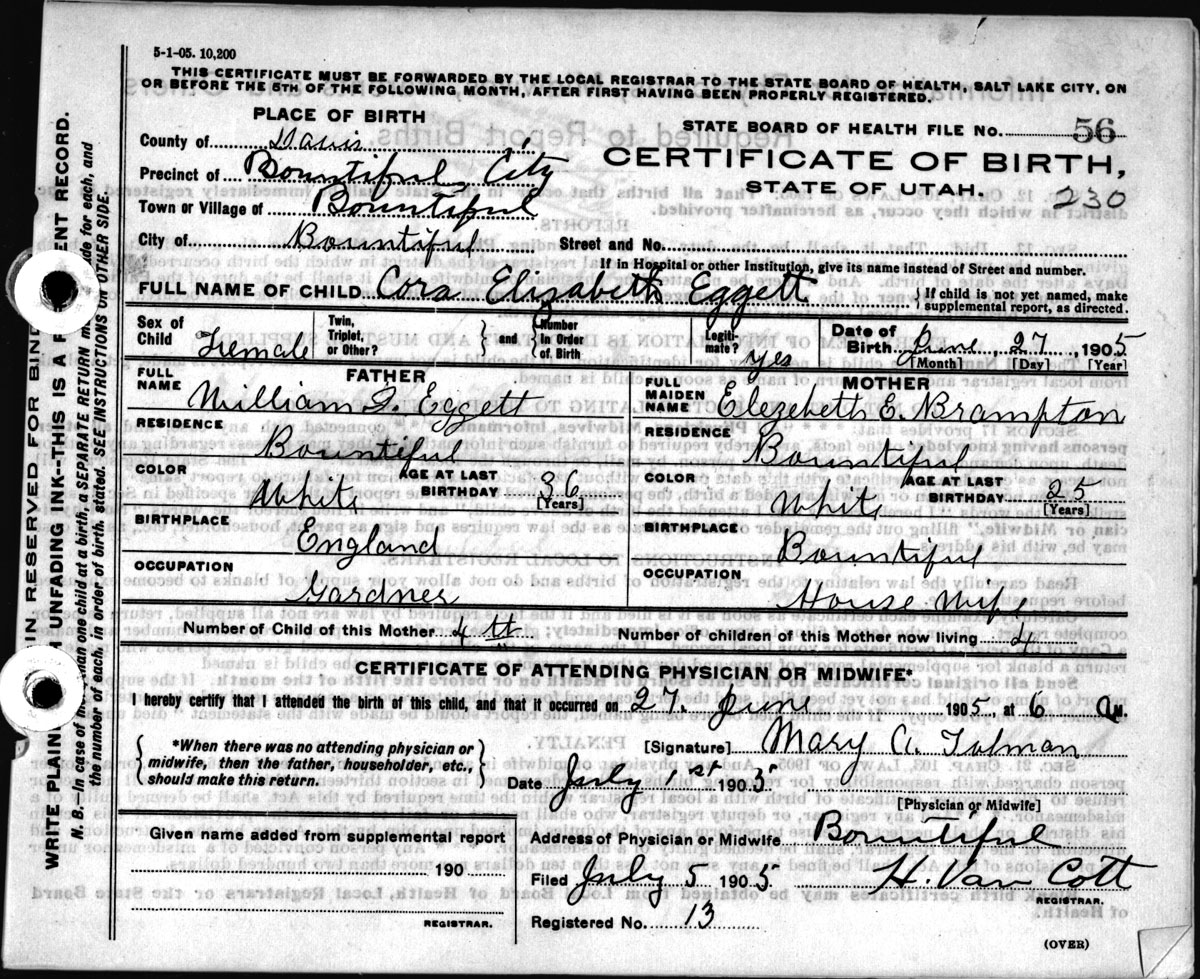 5-1-05. 10,200
THIS CERTIFICATE MUST BE FORWARDED BY THE LOCAL REGISTRAR TO THE STATE BOARD OF HEALTH, SALT LAKE CITY, ON
OR BEFORE THE 5TH OF THE FOLLOWING MONTH, AFTER FIRST HAVING BEEN PROPERLY REGISTERED.
PLACE OF BIRTH
County of Davis
Precinct of Bountiful City
Town or Village of Bountiful
City of Bountiful
STATE BOARD OF HEALTH FILE NO. 56
CERTIFICATE OF BIRTH,
STATE OF UTAH.
230
Street and No.
If in Hospital or other Institution, give its name instead of Street and number.
FULL NAME OF CHILD Cora Elizabeth Eggett
If child is not yet named, make
supplemental report, as directed.
Sex of Child Female
Twin, Triplet, or Other?
and Number in Order of Birth
Legitimate? yes
Date of Birth June 27, 1905
[Month] [Day] [Year]
FATHER
FULL NAME William F. Eggett
RESIDENCE Bountiful
COLOR White AGE AT LAST BIRTHDAY 36 [Years]
BIRTHPLACE England
OCCUPATION Gardner
MOTHER
FULL MAIDEN NAME Elezebeth E. Brampton
RESIDENCE Bountiful
COLOR White AGE AT LAST BIRTHDAY 25 [Years]
BIRTHPLACE Bountiful
OCCUPATION House Wife
Number of Child of this Mother 4th Number of children of this Mother now living 4
CERTIFICATE OF ATTENDING PHYSICIAN OR MIDWIFE*
I hereby certify that I attended the birth of this child, and that it occurred on 27. June 1905, at 6 a M.
*When there was no attending physician or
midwife, then the father, householder, etc.,
should make this return.
[Signature] Mary A. Tolman
Date July 1st 1905
[Physician or Midwife]
Given name added from supplemental report
190
REGISTRAR.
Address of Physician or Midwife Bountiful
Filed July 5 1905 H. Van Cott
REGISTRAR.
Registered No. 13
(OVER)
WRITE PLAIN UNFADING INK--THIS IS A ENT RECORD.
IN RESERVED FOR BIND
N. B.--In case of m an one child at a birth, a SEPARATE RETURN m ade for each, and
the number of each, in order of birth, stated. SEE INSTRUCTIONS ON OTHER SIDE.